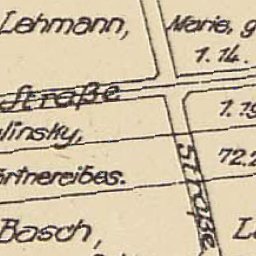 Lehmann, Marie, g
1.14.
Straße
linsky, 1.19
ärtnereibes. 72.2
Straße
Basch, L